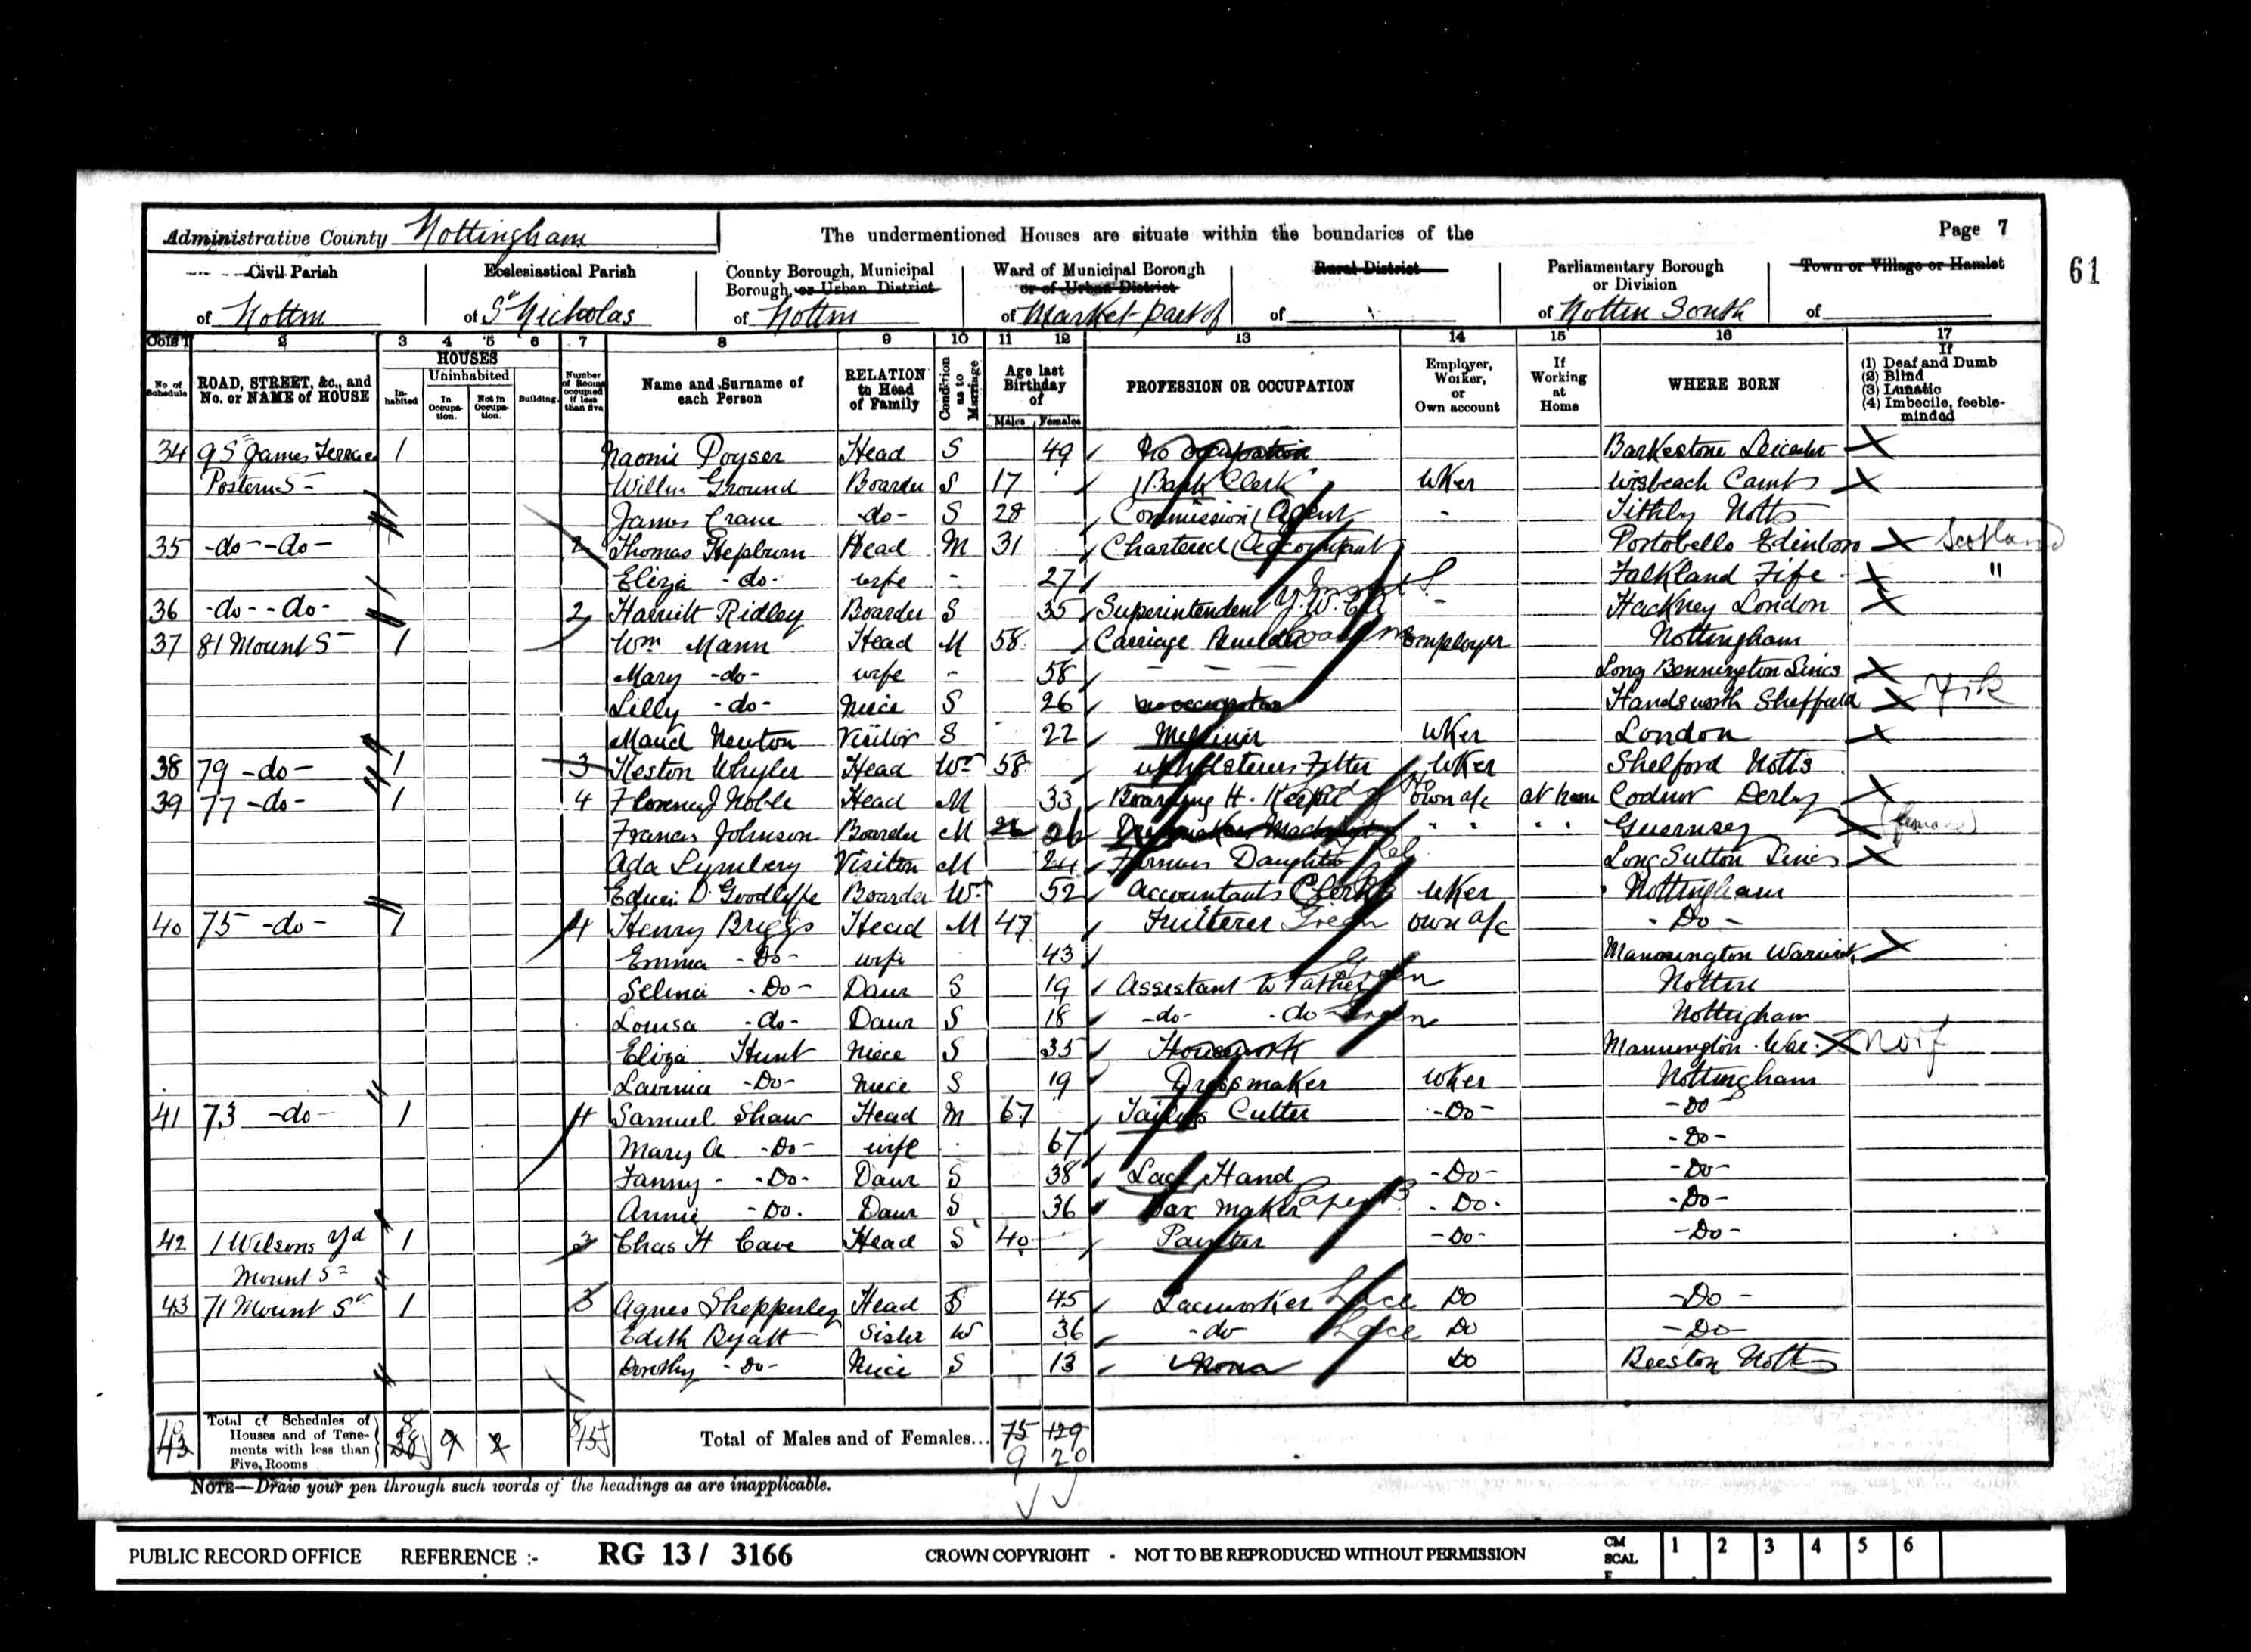 Administrative County Nottingham
The undermentioned Houses are situate within the boundaries of the
Page 7
61
Civil Parish of Nottm
Ecclesiastical Parish of St Nicholas
County Borough, Municipal Borough, or Urban District of Nottm
Ward of Municipal Borough or of Urban District of Market part of
Rural District of
Parliamentary Borough or Division of Nottm South
Town or Village or Hamlet of
Cols 1 2 3 4 5 6 7 8 9 10 11 12 13 14 15 16 17
No. of Schedule
ROAD, STREET, &c., and No. or NAME of HOUSE
HOUSES
Inhabited
Uninhabited
In Occupation.
Not in Occupation.
Building.
Number of Rooms occupied if less than five
Name and Surname of each Person
RELATION to Head of Family
Condition as to Marriage
Age last Birthday of
Males Females
PROFESSION OR OCCUPATION
Employer, Worker, or Own account
If Working at Home
WHERE BORN
If
(1) Deaf and Dumb
(2) Blind
(3) Lunatic
(4) Imbecile, feeble-minded
34 9 St James Terrace 1 Naomi Poyser Head S 49 No occupation Barkestone Leicester
Postern St Willm Ground Boarder S 17 Bank Clerk WKer Wisbeach Cambs
James Crane -do- S 28 Commission Agent - Tithby Notts
35 -do- -do- 2 Thomas Hepburn Head M 31 Chartered Accountant Portobello Edinboro Scotland
Eliza -do- wife - 27 Falkland Fife "
36 -do- -do- 2 Harriett Ridley Boarder S 35 Superintendent Y.W.C.A - Hackney London
37 81 Mount St 1 Wm Mann Head M 58 Carriage Builder Employer Nottingham
Mary -do- wife - 58 Long Bennington Lincs
Lilly -do- Niece S 26 no occupation Handsworth Sheffield
Maud Newton Visitor S 22 Milliner WKer London
38 79 -do- 1 3 Keston Whyler Head Wr 58 Upholsterers Fitter WKer Shelford Notts
39 77 -do- 1 4 Florence J Noble Head M 33 Boarding H. Keeper Own a/c at home Codnor Derby
Francis Johnson Boarder M 26 26 Dressmaker Machinist " " " " Guernsey (female)
Ada Lymbery Visitor M 24 Farmers Daughter Long Sutton Lincs
Edwin D Goodliffe Boarder Wr 52 Accountants Clerk WKer Nottingham
40 75 -do- 1 4 Henry Briggs Head M 47 Fruiterer Green own a/c -Do-
Emma -Do- wife 43 Mannington Warwick
Selina -Do- Daur S 19 Assistant to Father Nottm
Louisa -do- Daur S 18 -do- -do- Nottingham
Eliza Hunt Niece S 35 Housework Mannington War. Norf
Lavinia -Do- Niece S 19 Dressmaker WKer Nottingham
41 73 -do- 1 4 Samuel Shaw Head M 67 Tailors Cutter -Do- -Do-
Mary A -Do- wife 67 -Do-
Fanny -Do- Daur S 38 Lace Hand -Do- -Do-
Annie -Do- Daur S 36 Box maker Paper B -Do- -Do-
42 1 Wilsons Yd 1 3 Chas H Cave Head S 40 Painter -Do- -Do-
Mount St
43 71 Mount St 1 3 Agnes Shepperley Head S 45 Laceworker Lace Do -Do-
Edith Byatt Sister W 36 -do Lace Do -Do-
Dorothy -Do- Niece S 13 Do Beeston Notts
43
Total of Schedules of Houses and of Tenements with less than Five Rooms
Total of Males and of Females...
75 129
9 20
NOTE—Draw your pen through such words of the headings as are inapplicable.
PUBLIC RECORD OFFICE REFERENCE :- RG 13/ 3166 CROWN COPYRIGHT - NOT TO BE REPRODUCED WITHOUT PERMISSION
CM SCALE 1 2 3 4 5 6